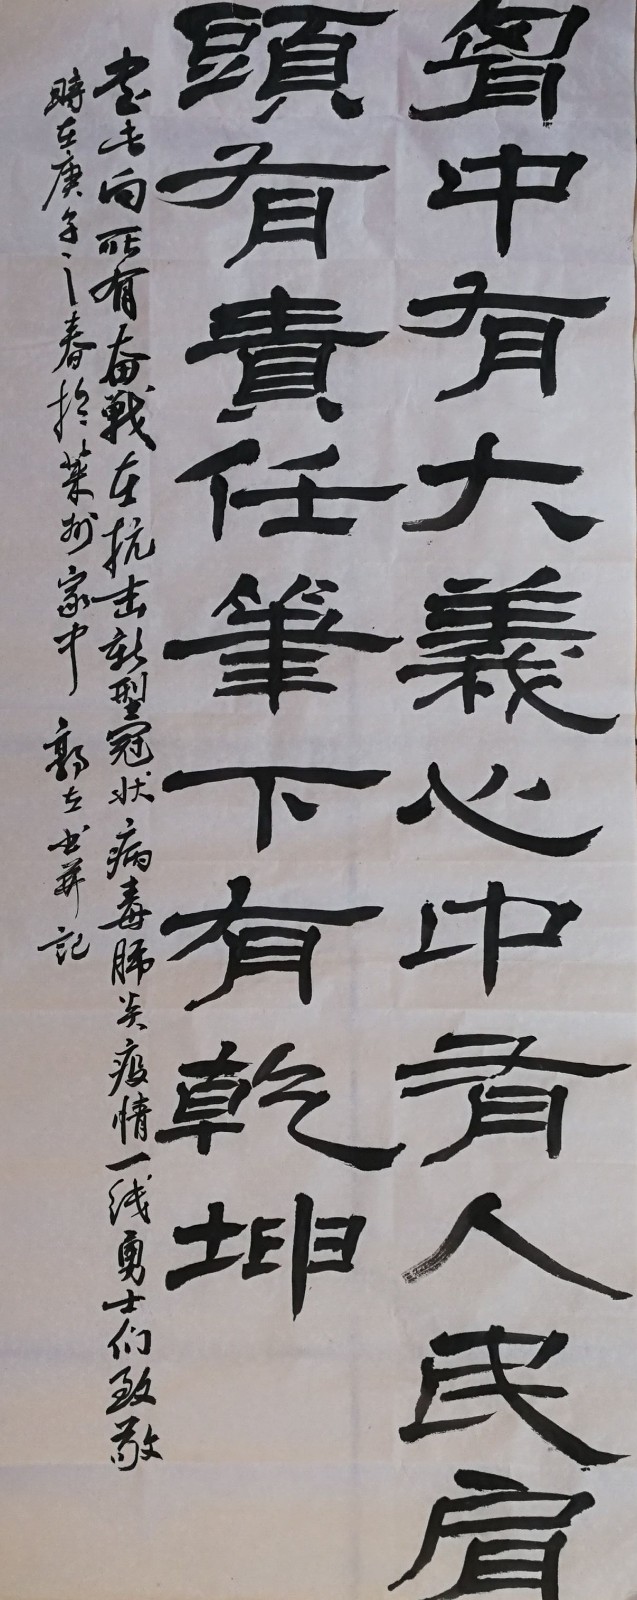 胷中有大義心中有人民肩
頭有責任筆下有乾坤
书此向所有奋战在抗击新型冠状病毒肺炎疫情一线勇士们致敬
時在庚子之春於莱州家中 郭左书并記